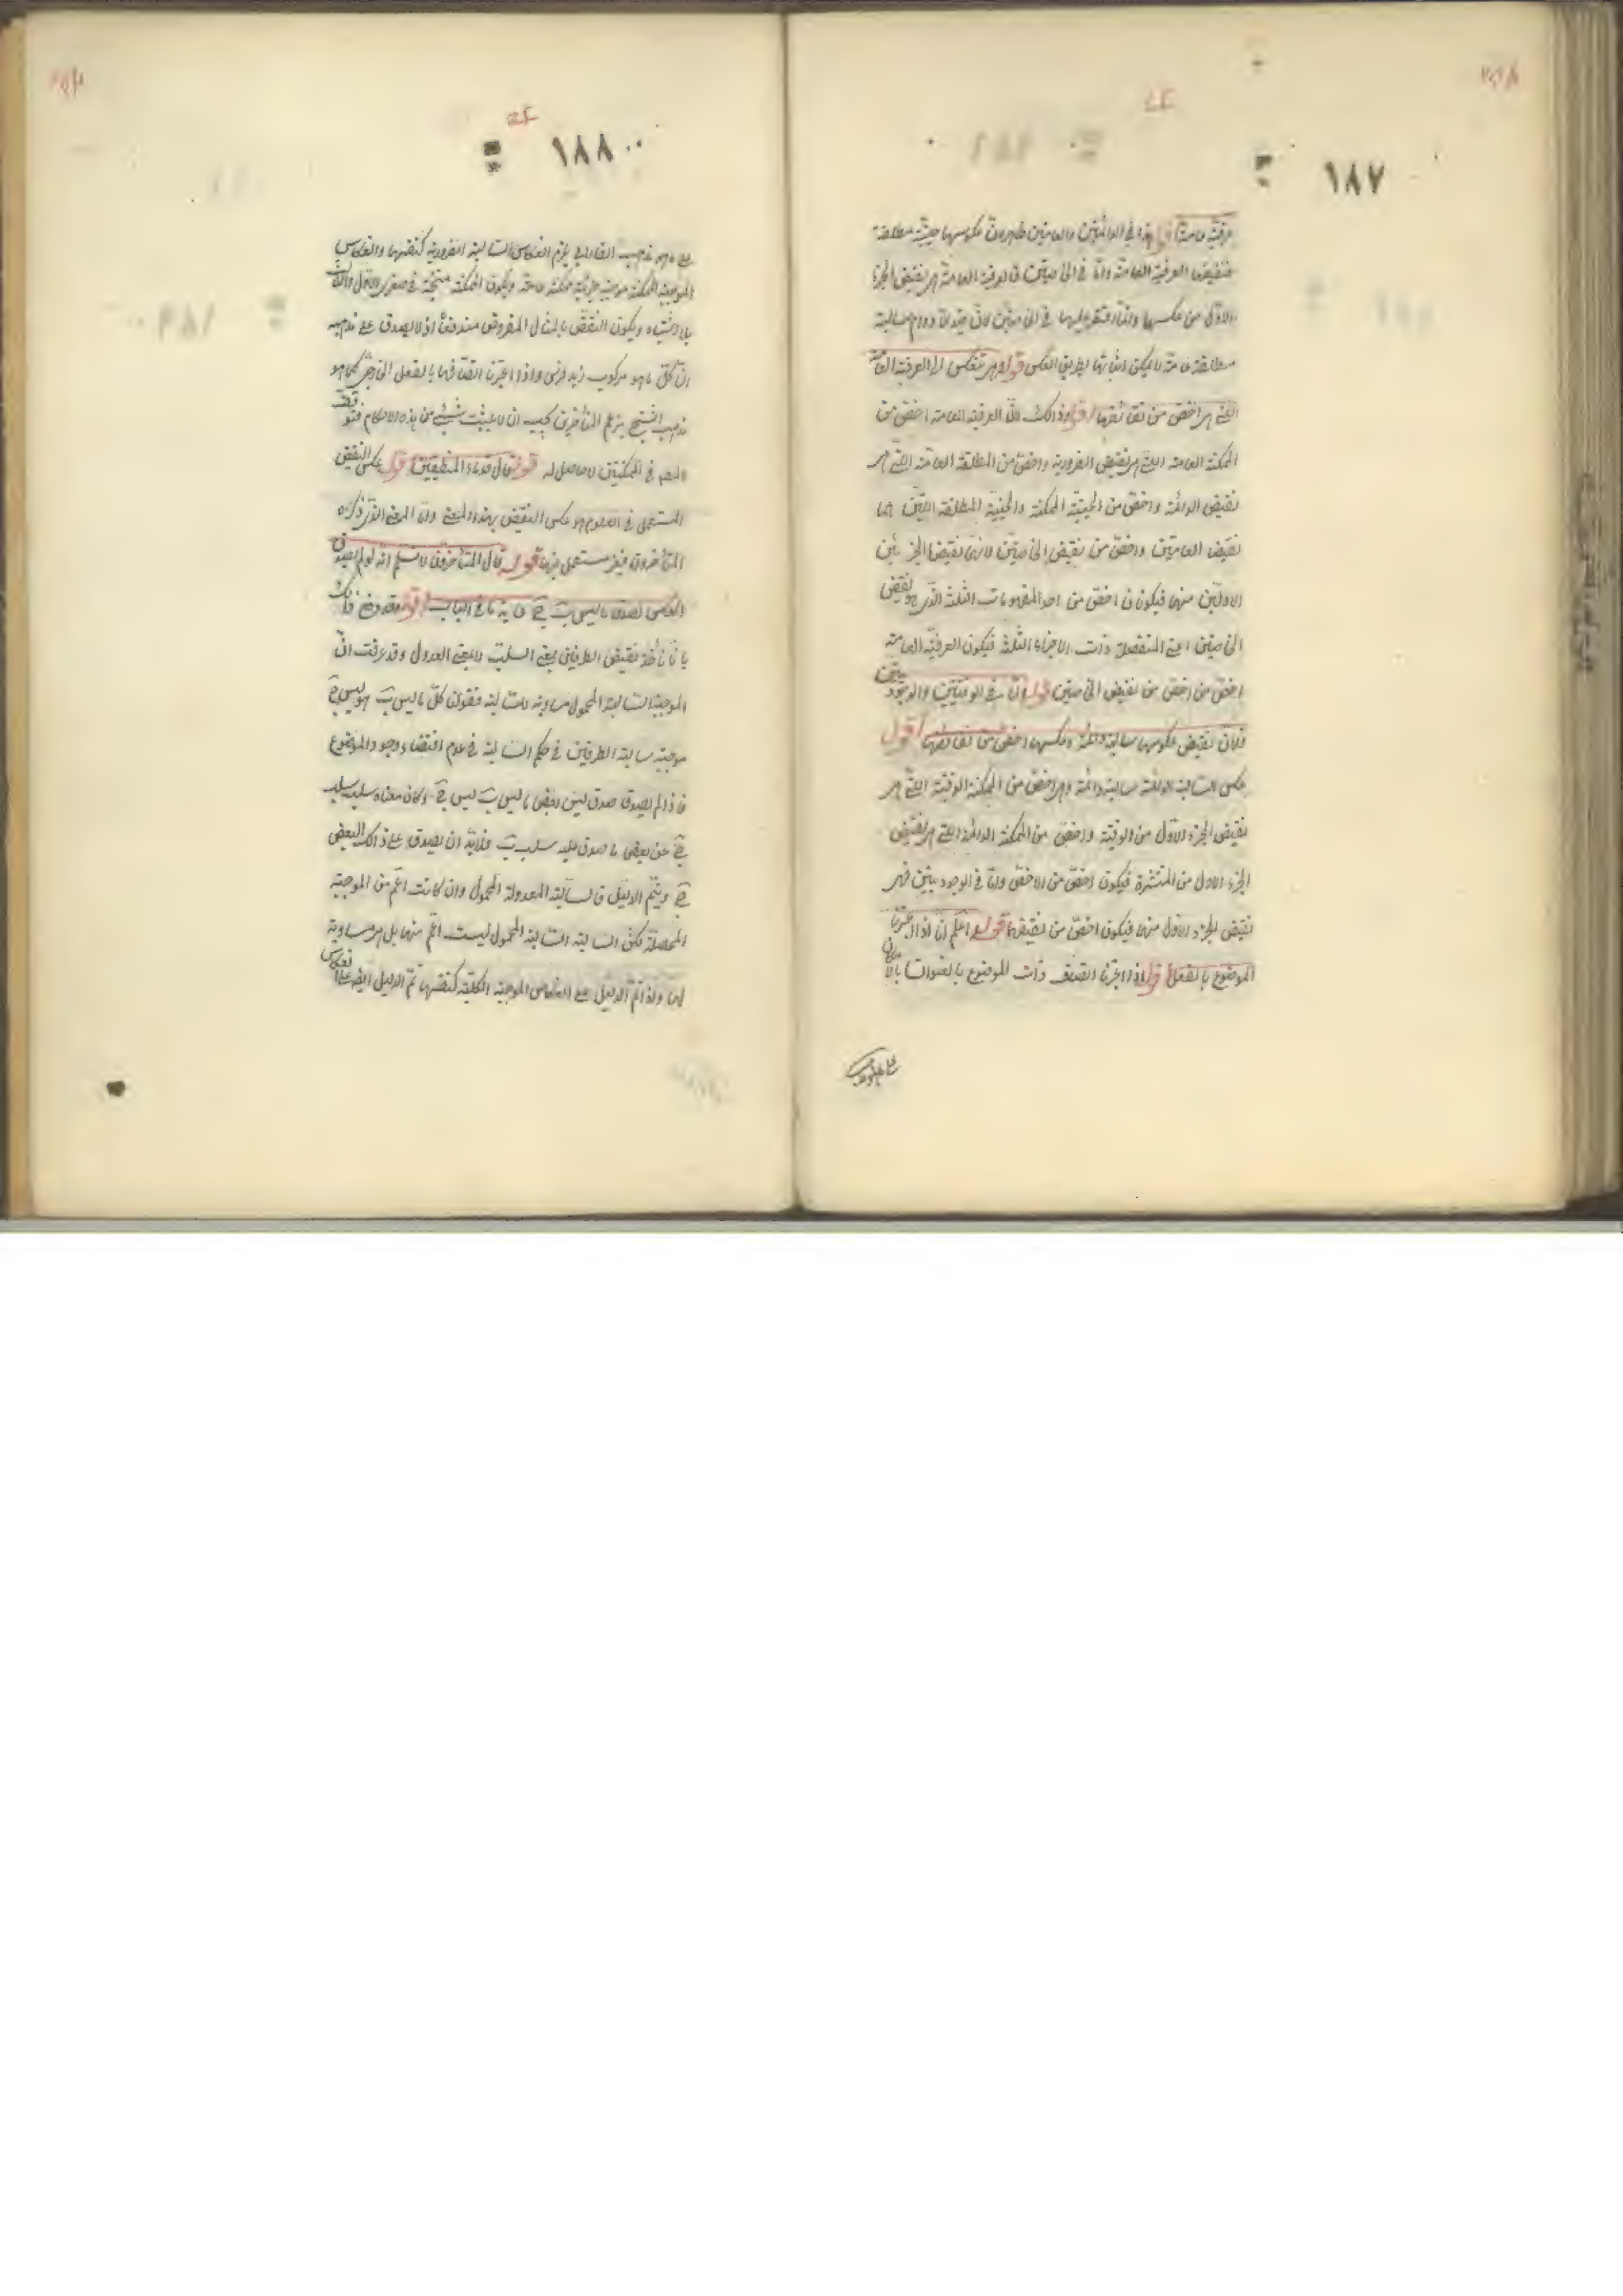 ١٨٧
عرفية عامة هذا في الدائمتين والعامتين ظاهر لان عكوسها حينية مطلقة
فنقيض العرفية العامة واما في الخاصتين فالعرفية العامة هي نقيض الجزء
الاول من عكسها وانما اقتصر عليها في الخاصتين لان قيد لا دوام سالبة
مطلقة عامة لا يمكن اثباتها بطريق العكس قوله هي تنعكس الى العرفية العامة
التي هي اخص من نقائضها اقول وذلك لان العرفية العامة اخص من
الممكنة العامة التي هي نقيض الضرورية واخص من المطلقة العامة التي هي
نقيض الدائمة واخص من الحينية الممكنة والحينية المطلقة اللتين هما
نقيضا العامتين واخص من نقيض الخاصتين لانهما نقيضا الجزئين
الاولين منهما فيكونان اخص من احد المفهومات الثلثة الذي هو نقيض
الخاصتين اعني المنفصلة ذات الاجزاء الثلثة فيكون العرفية العامة
اخص من اخص من نقيض الخاصتين قوله واما في الوقتيتين والوجوديتين
فلان نقيض عكوسها سالبة دائمة وعكسها اخص من نقائضها اقول
عكس السالبة الدائمة سالبة دائمة وهي اخص من الممكنة الوقتية التي هي
نقيض الجزء الاول من الوقتية واخص من الممكنة الدائمة التي هي نقيض
الجزء الاول من المنتشرة فيكون اخص من الاخص واما في الوجوديتين فهي
نقيض الجزء الاول منهما فيكون اخص من نقيضهما قوله اعلم انا اذا اعتبرنا
الموضوع بالفعل اقول اذا اعتبرنا اتصاف ذات الموضوع بالعنوان بالامكان
١٨٨
على ما هو مذهب الفارابي يلزم انعكاس السالبة الضرورية كنفسها وانعكاس
الموجبة الممكنة موجبة جزئية ممكنة عامة ويكون الممكنة منتجة في صغرى الاول والثالث
بلا اشتباه ويكون النقض بالمثال المفروض مندفعا اذ لا يصدق على مذهبه
ان كل ما هو مركوب زيد فرس واذا اعتبرنا اتصافها بالفعل الخارجي كما هو
مذهب الشيخ بزعم المتأخرين يجب ان لا يثبت شيء من هذه الاحكام فتوقف
المص في الممكنتين لا حاصل له قوله قال قدماء المنطقيين اقول عكس النقيض
المستعمل في العلوم هو عكس النقيض بهذا المعنى واما المعنى الذي ذكره
المتأخرون فغير مستعمل فيها قوله قال المتأخرون لا نسلم انه لو لم يصدق
العكس لصدق ما ليس ب ج غاية ما في الباب اقول وقد دفع ذلك
بانا نأخذ نقيض الطرفين بمعنى السلب لا بمعنى العدول وقد عرفت ان
الموجبة السالبة المحمول مساوية للسالبة فقولنا كل ما ليس ب هو ليس ج
موجبة سالبة الطرفين في حكم السالبة في عدم اقتضاء وجود الموضوع
فاذا لم يصدق صدق ليس بعض ما ليس ب ليس ج وكان معناه سلب سلب
ج عن بعض ما صدق عليه سلب ب فلابد ان يصدق على ذلك البعض
ج ويتم الدليل فالسالبة المعدولة المحمول وان كانت اعم من الموجبة
المحصلة لكن السالبة السالبة المحمول ليست اعم منها بل هي مساوية
لها واذا تم الدليل على انعكاس الموجبة الكلية كنفسها تم الدليل ايضا على انعكاس